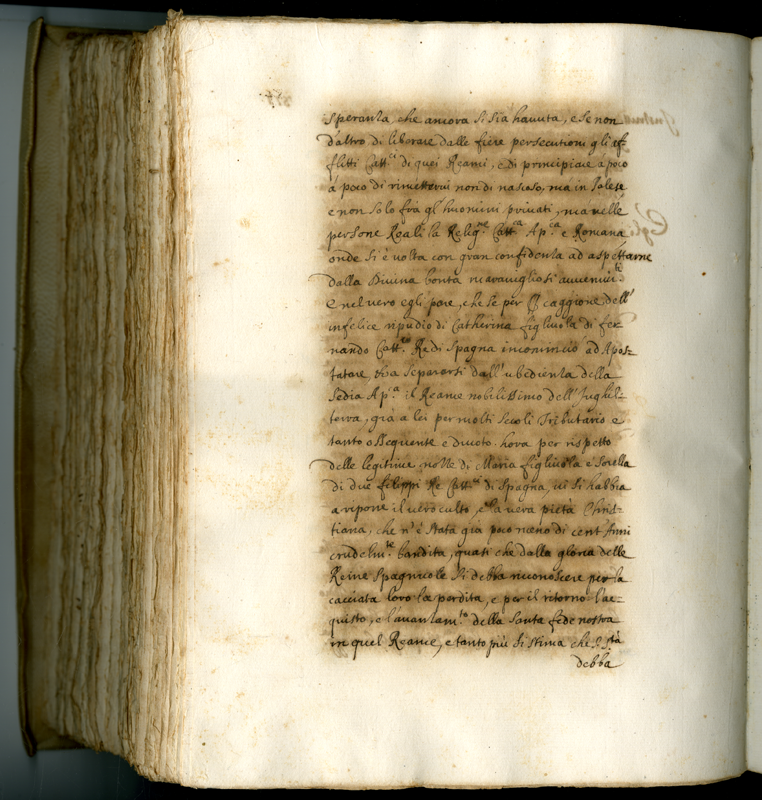 speranza, che ancora si sia havuta, e se non
d'altro di liberare dalle fiere persecutioni gli af-
flitti Catt.ci di quei Reami, e di principiare a poco
à poco di rimettervi non di nascoso, mà in palese
e non solo frà gl'huomini privati, ma nelle
persone Reali la Relig.ne Catt.ca Ap.ca e Romana
onde si è volta con gran confidenza ad aspettarne
dalla Divina bontà maravigliosi avvenim.ti
e nel vero egli pare, che se per caggione dell'
infelice ripudio di Catherina figliuola di fer-
nando Catt.co Re di Spagna incominciò ad Apos-
tatare, et a separarsi dall'ubedienza della
Sedia Ap.ca il Reame nobilissimo dell'Inghil-
terra, già a lei per molti secoli Tributario e
tanto ossequente e divoto. hora per rispetto
delle legitime nozze di Maria figliuola e sorella
di due filippi Re Catt.ci di Spagna, vi si habbia
a riporre il vero culto, e la vera pietà Chris-
tiana, che n'è stata già poco meno di cent'Anni
crudelm.te bandita, quasi che dalla gloria delle
Reine Spagnuole si debba riconoscere per la
cacciata loro la perdita, e per il ritorno l'ac-
quisto, e l'avanzam.to della santa fede nostra
in quel Reame, e tanto più si stima che ciò
debba